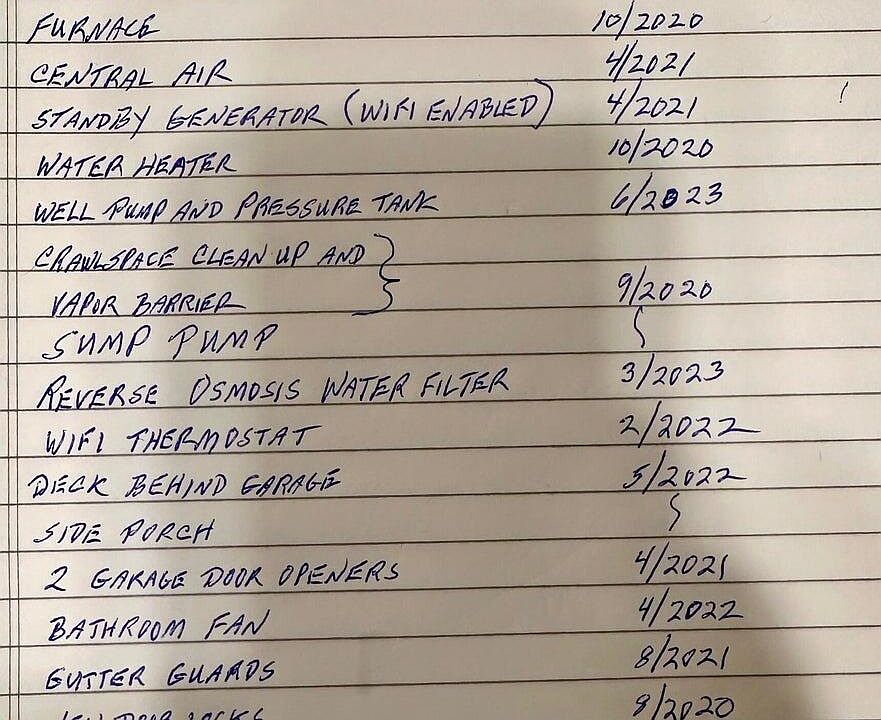 FURNACE 10/2020
CENTRAL AIR 4/2021
STANDBY GENERATOR (WIFI ENABLED) 4/2021
WATER HEATER 10/2020
WELL PUMP AND PRESSURE TANK 6/2023
CRAWLSPACE CLEAN UP AND
VAPOR BARRIER 9/2020
SUMP PUMP
REVERSE OSMOSIS WATER FILTER 3/2023
WIFI THERMOSTAT 2/2022
DECK BEHIND GARAGE 5/2022
SIDE PORCH
2 GARAGE DOOR OPENERS 4/2021
BATHROOM FAN 4/2022
GUTTER GUARDS 8/2021
DOOR LOCKS 8/2020